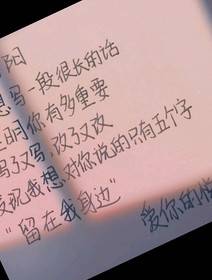 阳
想写一段很长的话
证明你有多重要
写了又写,改了又改
发现我想对你说的只有五个字
“留在我身边”
爱你的